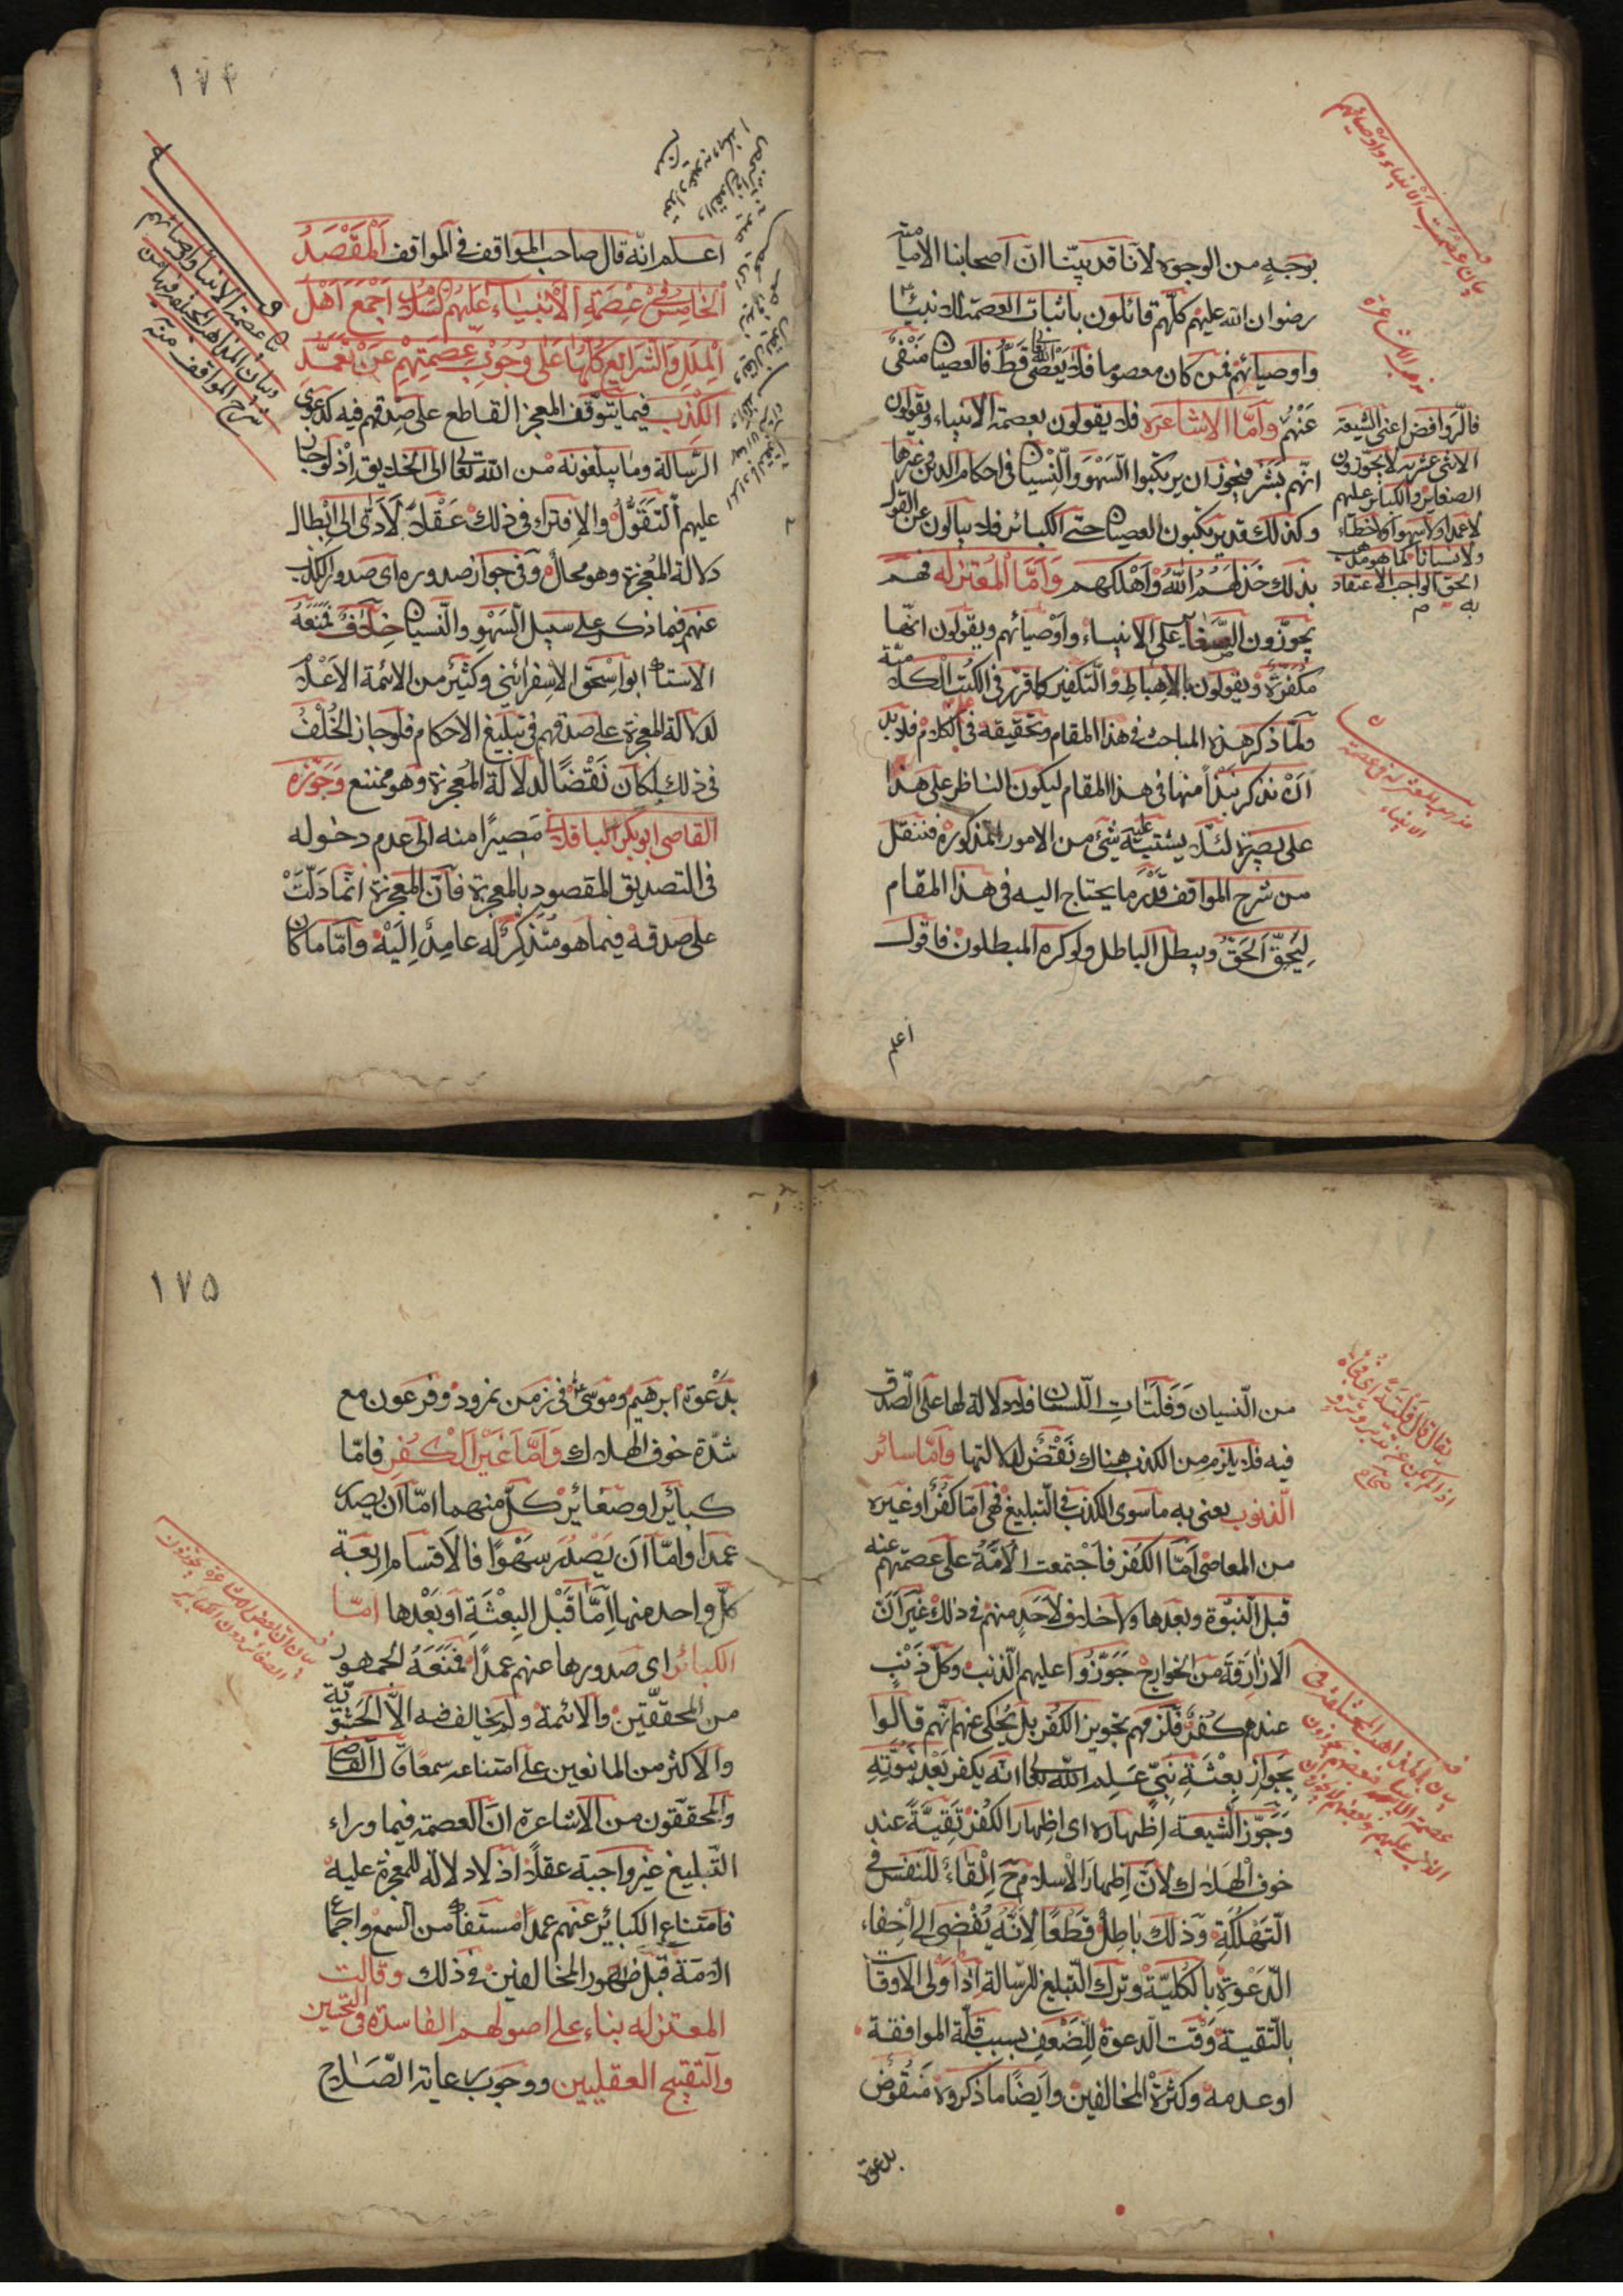 بوجهٍ من الوجوه لانّا قد بيّنّا انّ اصحابنا الاماميّة
رضوان الله عليهم كلّهم قائلون باثبات العصمة للانبياء
واوصيائهم فمن كان معصوما فلا يَعْصى الله قَطُّ فالعصيان مَنْفىٌّ
عَنْهُم وَاَمَّا الاشاعره فلا يقولون بعصمة الانبياء ويقولون
انّهم بَشَر فيجوز ان يرتكبوا السّهْوَ والنِّسْيان فى احكام الدين وغيرها
وكذلك قد يرتكبون العصيان حتّى الكبائر فلا يبالون عن القول
بذلك خَذَلَهُمُ اللهُ وَاَهْلكهم وَاَمَّا الْمُعْتَزله فهم
يجوّزون الصَّغاير على الانبياء واوْصيائهم ويقولون انّها
مكفّرَة ويقولون بالاِحباطِ والتّكفير كما قرّر فى الكتب الكلاميّة
ولمّا ذكر هذه المباحث فى هذا المقام وتحقيقه فى الكلام فلا بد
اَنْ نذكر نُبَذاً منها فى هذا المقام ليكون الناظر على هذا
على بصيرة لئلّا يشتبه عليه شئ من الامور المذكورة فننقل
من شرح المواقف قَدْرَ ما يحتاج اليه فى هذا المقام
لِيُحِقَّ الحَقَّ ويبطل الباطل ولو كره المبطلون فاقول
اعلم
بيان عصمت الانبياء واوصيائهم
مذهب الاشاعرة
فالرّوافض اعنى الشيعة
الاثنى عشريه لا يجوّزون
الصغاير والكبائر عليهم
لا عمدا ولا سهوا ولا خطاء
ولا نسيانا كما هو مذهب
الحق الواجب الاعتقاد
به م
مذهب المعتزله فى عصمة
الانبياء
١٧٤
اعلم انّه قال صاحب المواقف فى المواقف اَلْمَقْصَدُ
الْخَامِسُ فِى عِصْمَةِ الْاَنْبِيَاءِ عَلَيْهِمُ السَّلَامُ اَجْمَعَ اَهْلُ
الْمِلَلِ وَالشَّرَايِعِ كُلّهَا عَلَى وُجُوْبِ عِصْمَتِهِمْ عَنْ تَعَمُّدِ
الكَذِب فيما يتوقّف المعجز القاطع على صِدْقهم فيه كدعوى
الرّسالة وما يبلّغونه من الله تعالى الى الخلايق اِذْ لَو جاز
عليهم التَّقَوُّلُ والاِفتراء فى ذلك عَقْلاً لَاَدّى الى اِبْطال
دلالة المعْجزة وهو محالٌ وفى جواز صدوره اى صدور الكذب
عنهم فيما ذكر على سبيل السَّهْوِ والنّسيان خلافٌ فَمَنَعَهُ
الاستاد ابو اِسْحق الاسفرائنى وكثيْر من الائمة الاَعْلام
لدلالة المعجزة على صدقهم فى تبليغ الاحكام فلو جاز الخُلْفُ
فى ذلك لكان نَقْضاً لدلالة المُعجزة وهو ممتنع وَجَوَّزه
القاضى ابوبكر الباقلانى مصيرًا منه الى عدم دخوله
فى التصديق المقصود بالمعجزة فانّ المعجزة انّما دَلّتْ
على صدقه فيما هو مُتذكِّرٌ له عامِدٌ اِلَيْه وامّا ما كان
بيان عصمة الانبياء واوصيائهم
وبيان المذاهب المختلفه فيها من
شرح المواقف منه
من النّسيان وَفَلَتاتِ اللّسان فلا دلالة لها على الصّدق
فيه فلا يلزم من الكذب هناك نَقْضٌ لدلالتها وَاَمَّا سائر
الذّنوب يعنى به ما سوى الكذب فى التّبليغ فهى امّا كُفْر او غيره
من المعاصى اَمّا الكفر فاجْتمعت الامّةُ على عصمتهم عنه
قبل النّبوّة وبعدها ولا خلاف لاحدٍ منهم فى ذلك غَيْرَ اَنّ
الازارقة من الخوارج جَوّزُوا عليهم الذّنب وكلّ ذَنْبٍ
عندهم كفرٌ فلزمهم تجويز الكفر بل يُحْكى عنهم انّهم قالوا
بجَواز بِعْثَةِ نبىّ عَلِم الله تعالى انّه يكفر بَعْدَ نبوّتِهِ
وَجَوّز الشّيعة اِظهاره اى اظهار الكُفر تَقيَّةً عند
خوف الهلاك لانّ اِظهارَ الاسلام ح اِلْقاءٌ للنّفس فى
التّهلُكة وَذلك باطِلٌ قَطْعًا لِاَنّهُ يُفْضى الى اِخْفاء
الدّعوة بالكليّة وترك التّبليغ للرّسالة اِذْ اَولى الاوقات
بالتّقية وَقْت الدعوة للضّعف بسبب قلّة الموافقة
او عدمه وكثرة المخالفين وايضًا ما ذكروه مَنقُوضٌ
بدعوة
يقال قال فلتةً اى فجأةً
اذا لم يكن عن تدبّر وتروّ
صحاح
بيان المذاهب المختلفة فى
١٧٥
بدَعْوة ابرهيم وموسى ع فى زمن نمرود وفرعون مع
شدّة خوف الهلاك وَاَمَّا غَيْر الْكُفرِ فامّا
كبائر او صغائر كلّ منهما امّا اَن يصدر
عمداً وامّا اَن يَصْدُر سَهْوًا فالاقسام اربعة
كلّ واحد منها اِمَّا قَبْل البِعْثَة اَو بَعْدها امّا
الكبائر اى صدورها عنهم عمدًا فَمَنَعَهُ الجمهور
من المحقّقين والائمة ولم يخالف فيه الاّ الحَشَويّة
والاكثر من المانعين على امتناعه سمعًا قال القاضى
والمحقّقون من الاشاعرة انّ العصمة فيما وراء
التّبليغ غير واجبة عقلاً اذ لا دلالة للمعجزة عليه
فامتناع الكبائر عنهم عمدًا مستفاد من السمع واجماع
الامّة قبل ظهور المخالفين فى ذلك وقالت
المعتزله بناء على اصولهم الفاسدة فى التّحسين
والتقبيح العقليين ووجوب رعاية الصّلاح